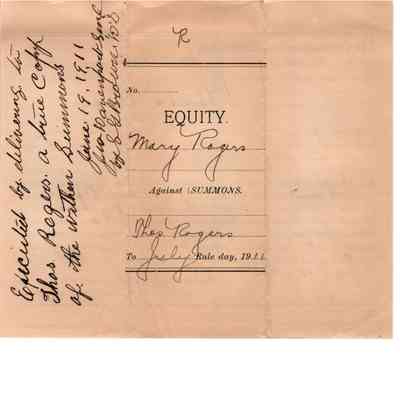 R
No.
EQUITY.
Mary Rogers
Against } SUMMONS.
Thos Rogers
To July Rule day, 1911.
Executed by delivering to
Thos Rogers a true Copy
of the within Summons
June 19, 1911